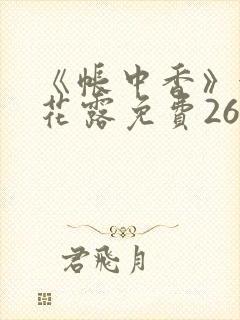 《帐中香》
花露免費26
君飛月